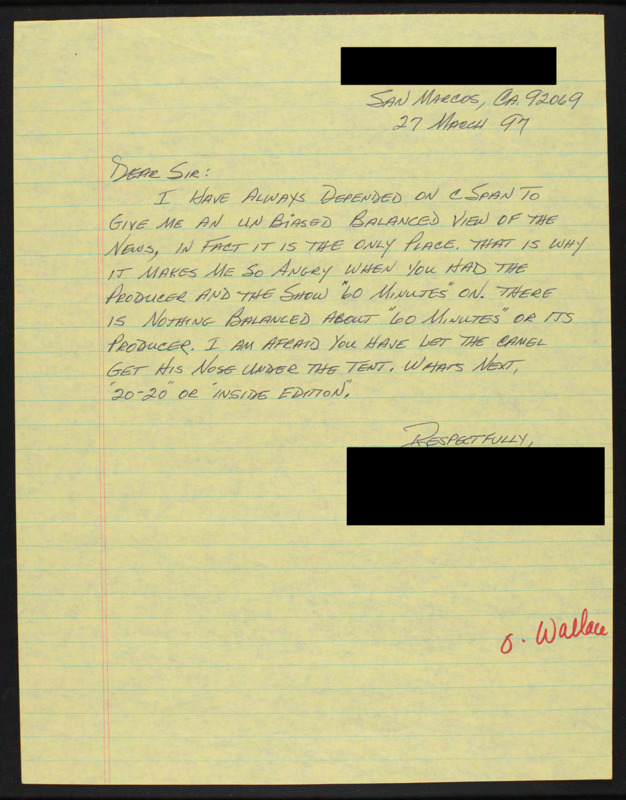 SAN MARCOS, CA. 92069
27 MARCH 97
DEAR SIR:
I HAVE ALWAYS DEPENDED ON C SPAN TO
GIVE ME AN UN BIASED BALANCED VIEW OF THE
NEWS, IN FACT IT IS THE ONLY PLACE. THAT IS WHY
IT MAKES ME SO ANGRY WHEN YOU HAD THE
PRODUCER AND THE SHOW "60 MINUTES" ON. THERE
IS NOTHING BALANCED ABOUT "60 MINUTES" OR ITS
PRODUCER. I AM AFRAID YOU HAVE LET THE CAMEL
GET HIS NOSE UNDER THE TENT. WHATS NEXT,
"20-20" OR "INSIDE EDITION".
RESPECTFULLY,
O. Wallace